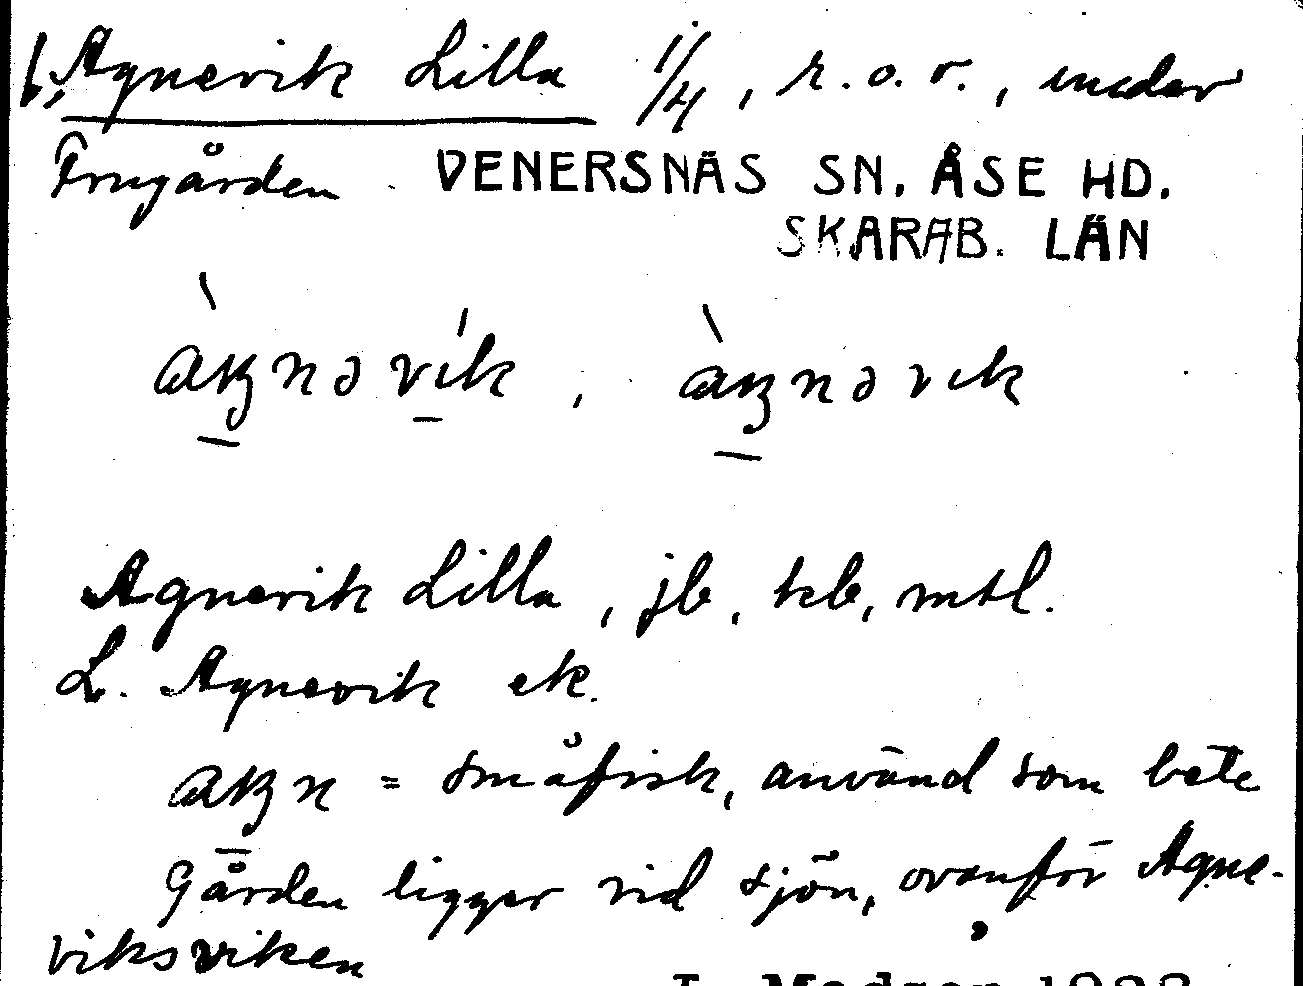 1, Agnevik Lilla 1/4, r. o. r., under
Frugården VENERSNÄS SN. ÅSE HD.
SKARAB. LÄN
Agnevik Lilla, jb, tkb, mtl.
L. Agnevik ek.
= småfisk, använd som bete
Gården ligger vid sjön, ovanför Agne-
viksviken